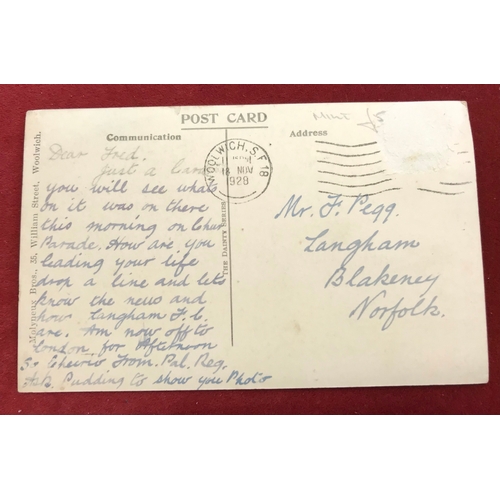 POST CARD
Communication
Address
Mint £5
WOOLWICH. S.E.18
18 NOV
1928
Molyneux Bros., 55, William Street, Woolwich.
THE DAINTY SERIES
Dear Fred.
Just a Card
you will see what
on it was on there
this morning on Chur
Parade. How are you
leading your life
drop a line and lets
know the news and
how Langham F.C.
are. Am now off to
London for Afternoon
So Cheirio From. Pal. Reg.
Ask Pudding to show you Photo
Mr. F. Pegg.
Langham
Blakeney
Norfolk.